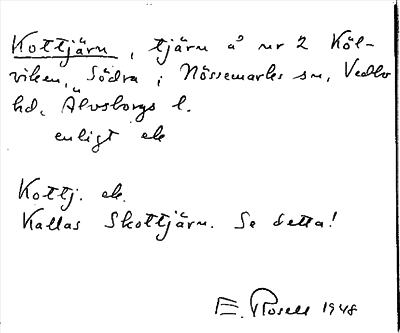 Kottjärn, tjärn å nr 2 Köl-
viken, Södra i Nössemarks sn, Vedbo
hd, Älvsborgs l.
enligt ek
Kottj. ek.
Kallas Skottjärn. Se detta!
E. Rosell 1948